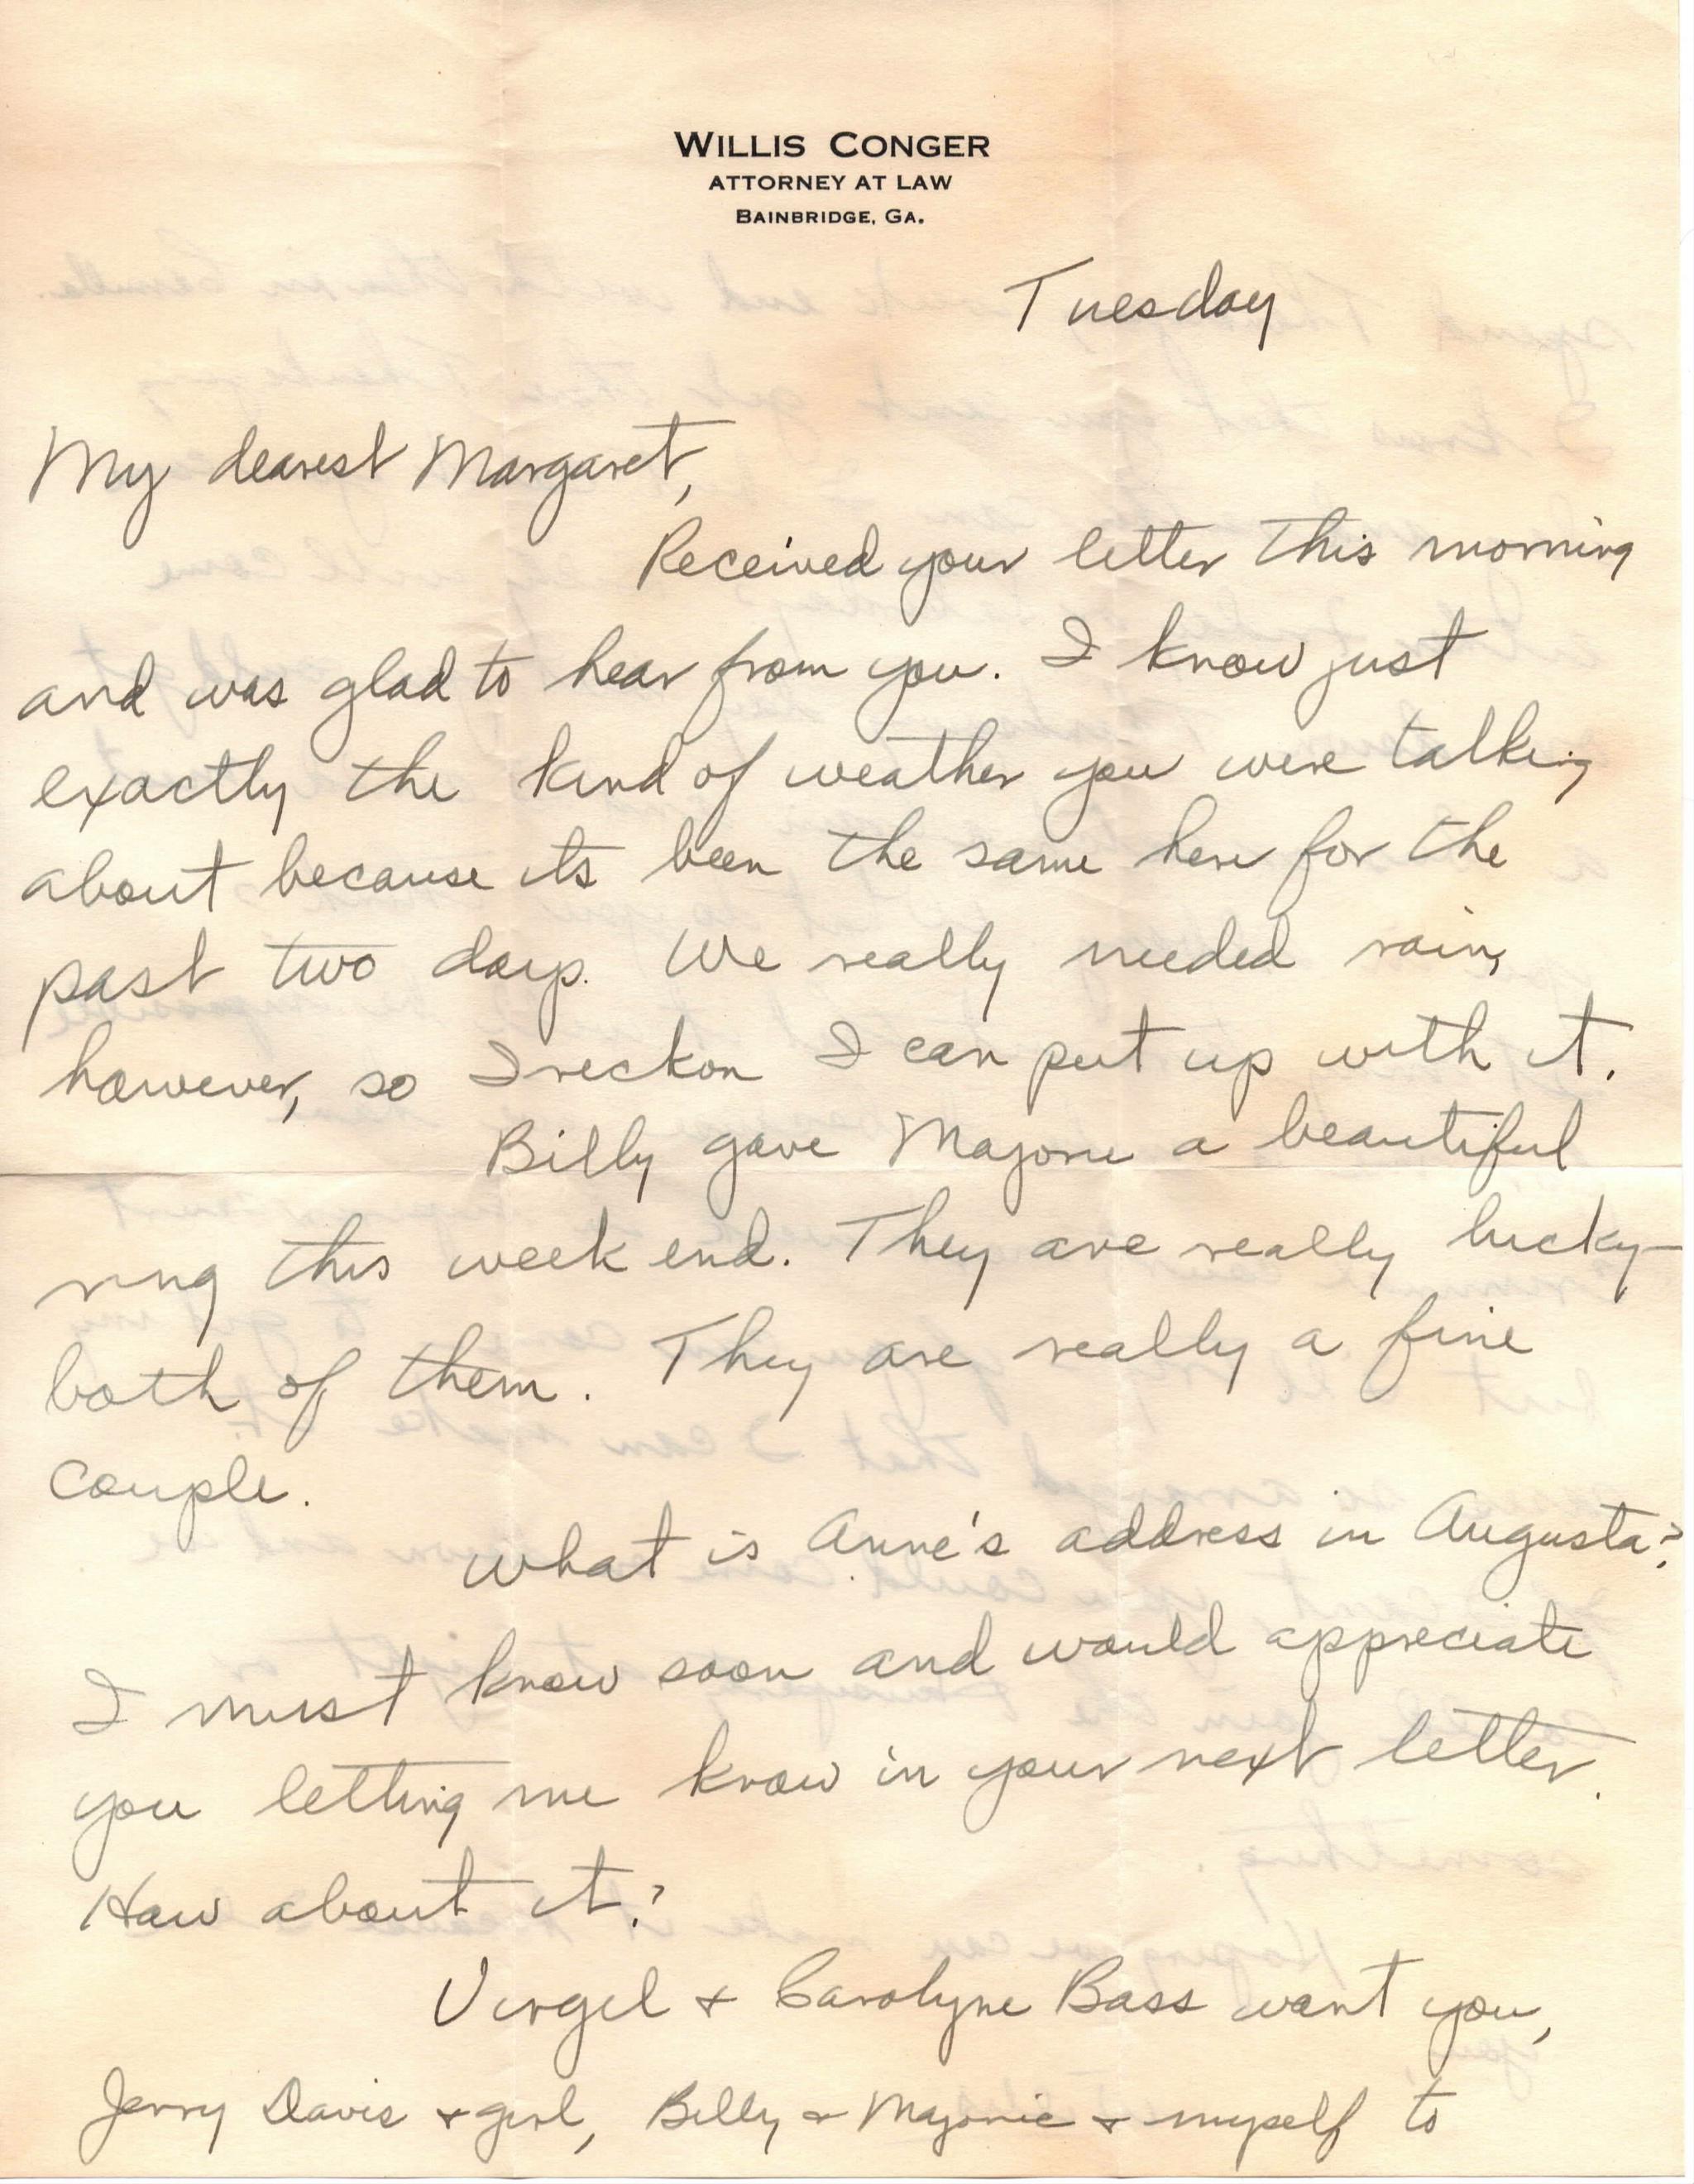 WILLIS CONGER
ATTORNEY AT LAW
BAINBRIDGE, GA.
Tuesday
My dearest Margaret,
Received your letter this morning
and was glad to hear from you. I know just
exactly the kind of weather you were talking
about because its been the same here for the
past two days. We really needed rain,
however, so I reckon I can put up with it.
Billy gave Majorie a beautiful
ring this week end. They are really lucky—
both of them. They are really a fine
couple.
What is Anne's address in Augusta?
I must know soon and would appreciate
you letting me know in your next letter.
How about it?
Virgil + Carolyne Bass want you,
Jerry Davis + girl, Billy + Majorie + myself to